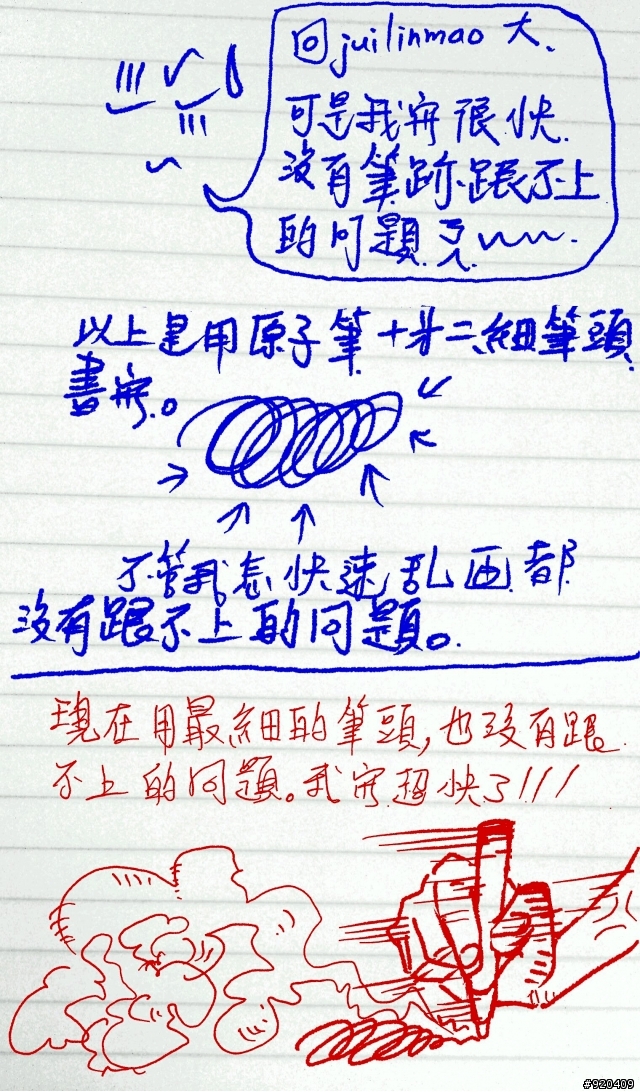 回juilinmao 大.
可是我寫很快.
沒有筆跡跟不上
的问題ㄋㄟ~~.
以上是用原子筆+第二細筆頭
書寫。
不管我怎快速乱画都
沒有跟不上的问題。
現在用最細的筆頭,也沒有跟
不上的问題。我寫超快了!!!
#920409